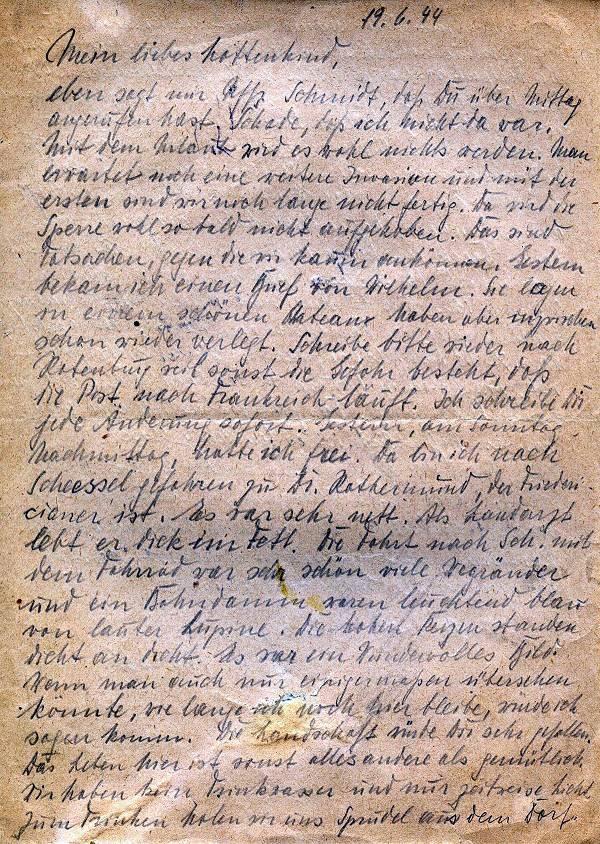 19.6.44
Mein liebes Kattenkind,
eben sagt mir Uffz. Schmidt, daß Du über Mittag
angerufen hast. Schade, daß ich nicht da war.
Mit dem Urlaub wird es wohl nichts werden. Man
erwartet noch eine weitere Invasion und mit der
ersten sind wir noch lange nicht fertig. Da wird die
Sperre wohl so bald nicht aufgehoben. Das sind
Tatsachen, gegen die wir kaum ankönnen. Gestern
bekam ich einen Brief von Wilhelm. Sie lagen
in einem schönen Chateau haben aber inzwischen
schon wieder verlegt. Schreibe bitte wieder nach
Rotenburg weil sonst die Gefahr besteht, daß
die Post nach Frankreich läuft. Ich schreibe Dir
jede Änderung sofort. Gestern, am Sonntag
Nachmittag, hatte ich frei. Da bin ich nach
Scheessel gefahren zu Dr. Rothermund, der Frideri-
cianer ist. Es war sehr nett. Als Landarzt
lebt er dick im Fett. Die Fahrt nach Sch. mit
dem Fahrrad war sehr schön viele Wegränder
und ein Bahndamm waren leuchtend blau
von lauter Lupine. Die hohen Kerzen standen
dicht an dicht. Es war ein wundervolles Bild.
Wenn man auch nur einigermaßen übersehen
könnte, wie lange ich noch hier bleibe, würde ich
sagen komm. Die Landschaft würde Dir sehr gefallen.
Das Leben hier ist sonst alles andere als gemütlich.
Wir haben kein Trinkwasser und nur zeitweise Licht.
Zum Trinken holen wir uns Sprudel aus dem Dorf.